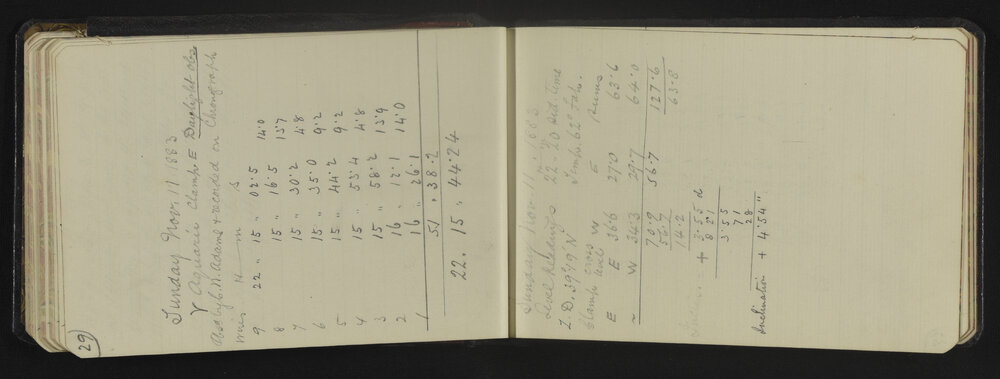 29
Sunday Nov. 11 1883
γ Aquarii Clamp E Daylight Obs
Obs by C.W. Adams & recorded on Chronograph
wires H m s
9 22 " 15 " 02.5 14.0
8 15 " 16.5 13.7
7 15 " 30.2 4.8
6 15 " 35.0 9.2
5 15 " 44.2 9.2
4 15 " 53.4 4.8
3 15 " 58.2 13.9
2 16 " 12.1 14.0
1 16 " 26.1
51 . 38.2
22. 15 " 44.24
Sunday Nov. 11. 1883
Level Readings 22 . 20 Sid Time
Z.D. 39°49' N Temp. 62° Fah.
Clamp cross level W E
E E 36.6 27.0 63.6
~ W 34.3 29.7 64.0
70.9 56.7 127.6
56.7 63.8
14.2
+ 3.55 d
8 27
3.55
71
28
Inclination + 4.54"